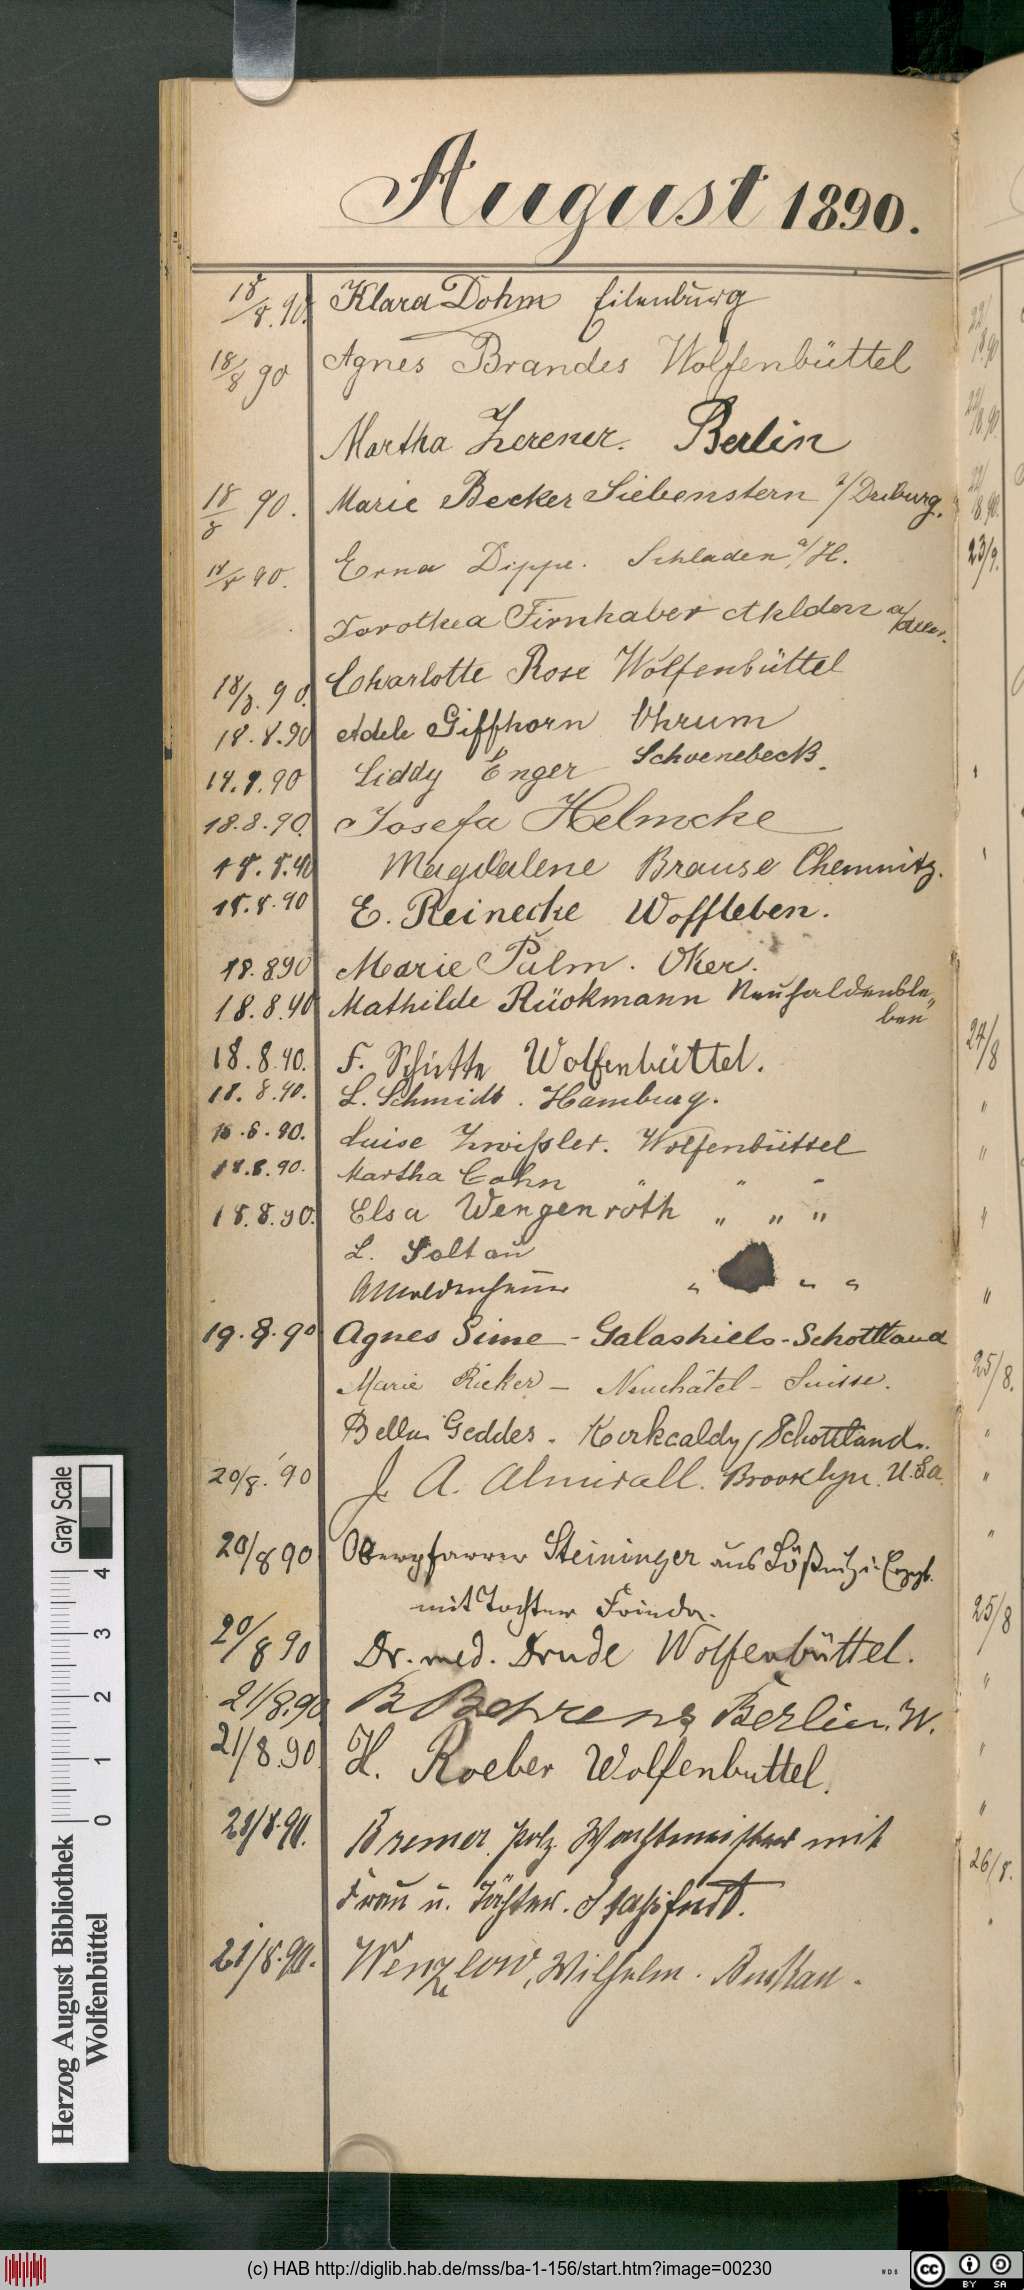 August 1890.
18/8.90. Klara Dohm Eilenburg
18/8 90 Agnes Brandes Wolfenbüttel
Martha Zerener. Berlin
18/8 90. Marie Becker Siebenstern b/Driburg.
18/8 90. Erna Dippe. Schladen a/H.
Dorothea Firnhaber Ahlden a/Aller.
18/8. 90. Charlotte Rose Wolfenbüttel
18.8.90 Adele Giffhorn Ohrum
18.8.90 Liddy Enger Schoenebeck.
18.8.90. Josefa Helmcke
18.8.90 Magdalene Brause Chemnitz.
18.8.90 E. Reinecke Woffleben.
18.890 Marie Palm. Oker.
18.8.90 Mathilde Rückmann Neuhaldensle„
ben
18.8.90. F. Schütte Wolfenbüttel.
18.8.90. L. Schmidt. Hamburg.
18.8.90. Luise Zwißler. Wolfenbüttel
18.8.90. Martha Cohn " " "
18.8.90. Elsa Wengenroth " " "
L. Soltau
" " "
19.8.90 Agnes Sime - Galashiels - Schottland
Marie Rieker - Neuchâtel - Suisse.
Bella Geddes. Kirkcaldy/Schottland.
20/8.'90 J. A. Almirall. Brooklyn. U.S.a.
20/8 90 Oberpfarrer Steininger aus Lößnitz i. Erzgb.
mit Tochter Frieda.
20/8 90 Dr. med. Drude Wolfenbüttel.
21/8.90 B Behrens Berlin. W.
21/8.90 H. Roeber Wolfenbuttel.
21/8.90. Bremer, Polz. Wachtmeister mit
Frau u. Töchter. Staßfurt.
21/8.90. Wenzlow, Wilhelm. Buckau.
22/8 90
22/8.90.
22/8.90.
23/8.
24/8
"
"
"
"
25/8.
"
"
"
25/8
"
"
"
26/8.
Gray Scale
0 1 2 3 4
Herzog August Bibliothek
Wolfenbüttel
(c) HAB http://diglib.hab.de/mss/ba-1-156/start.htm?image=00230
WDB
cc BY SA